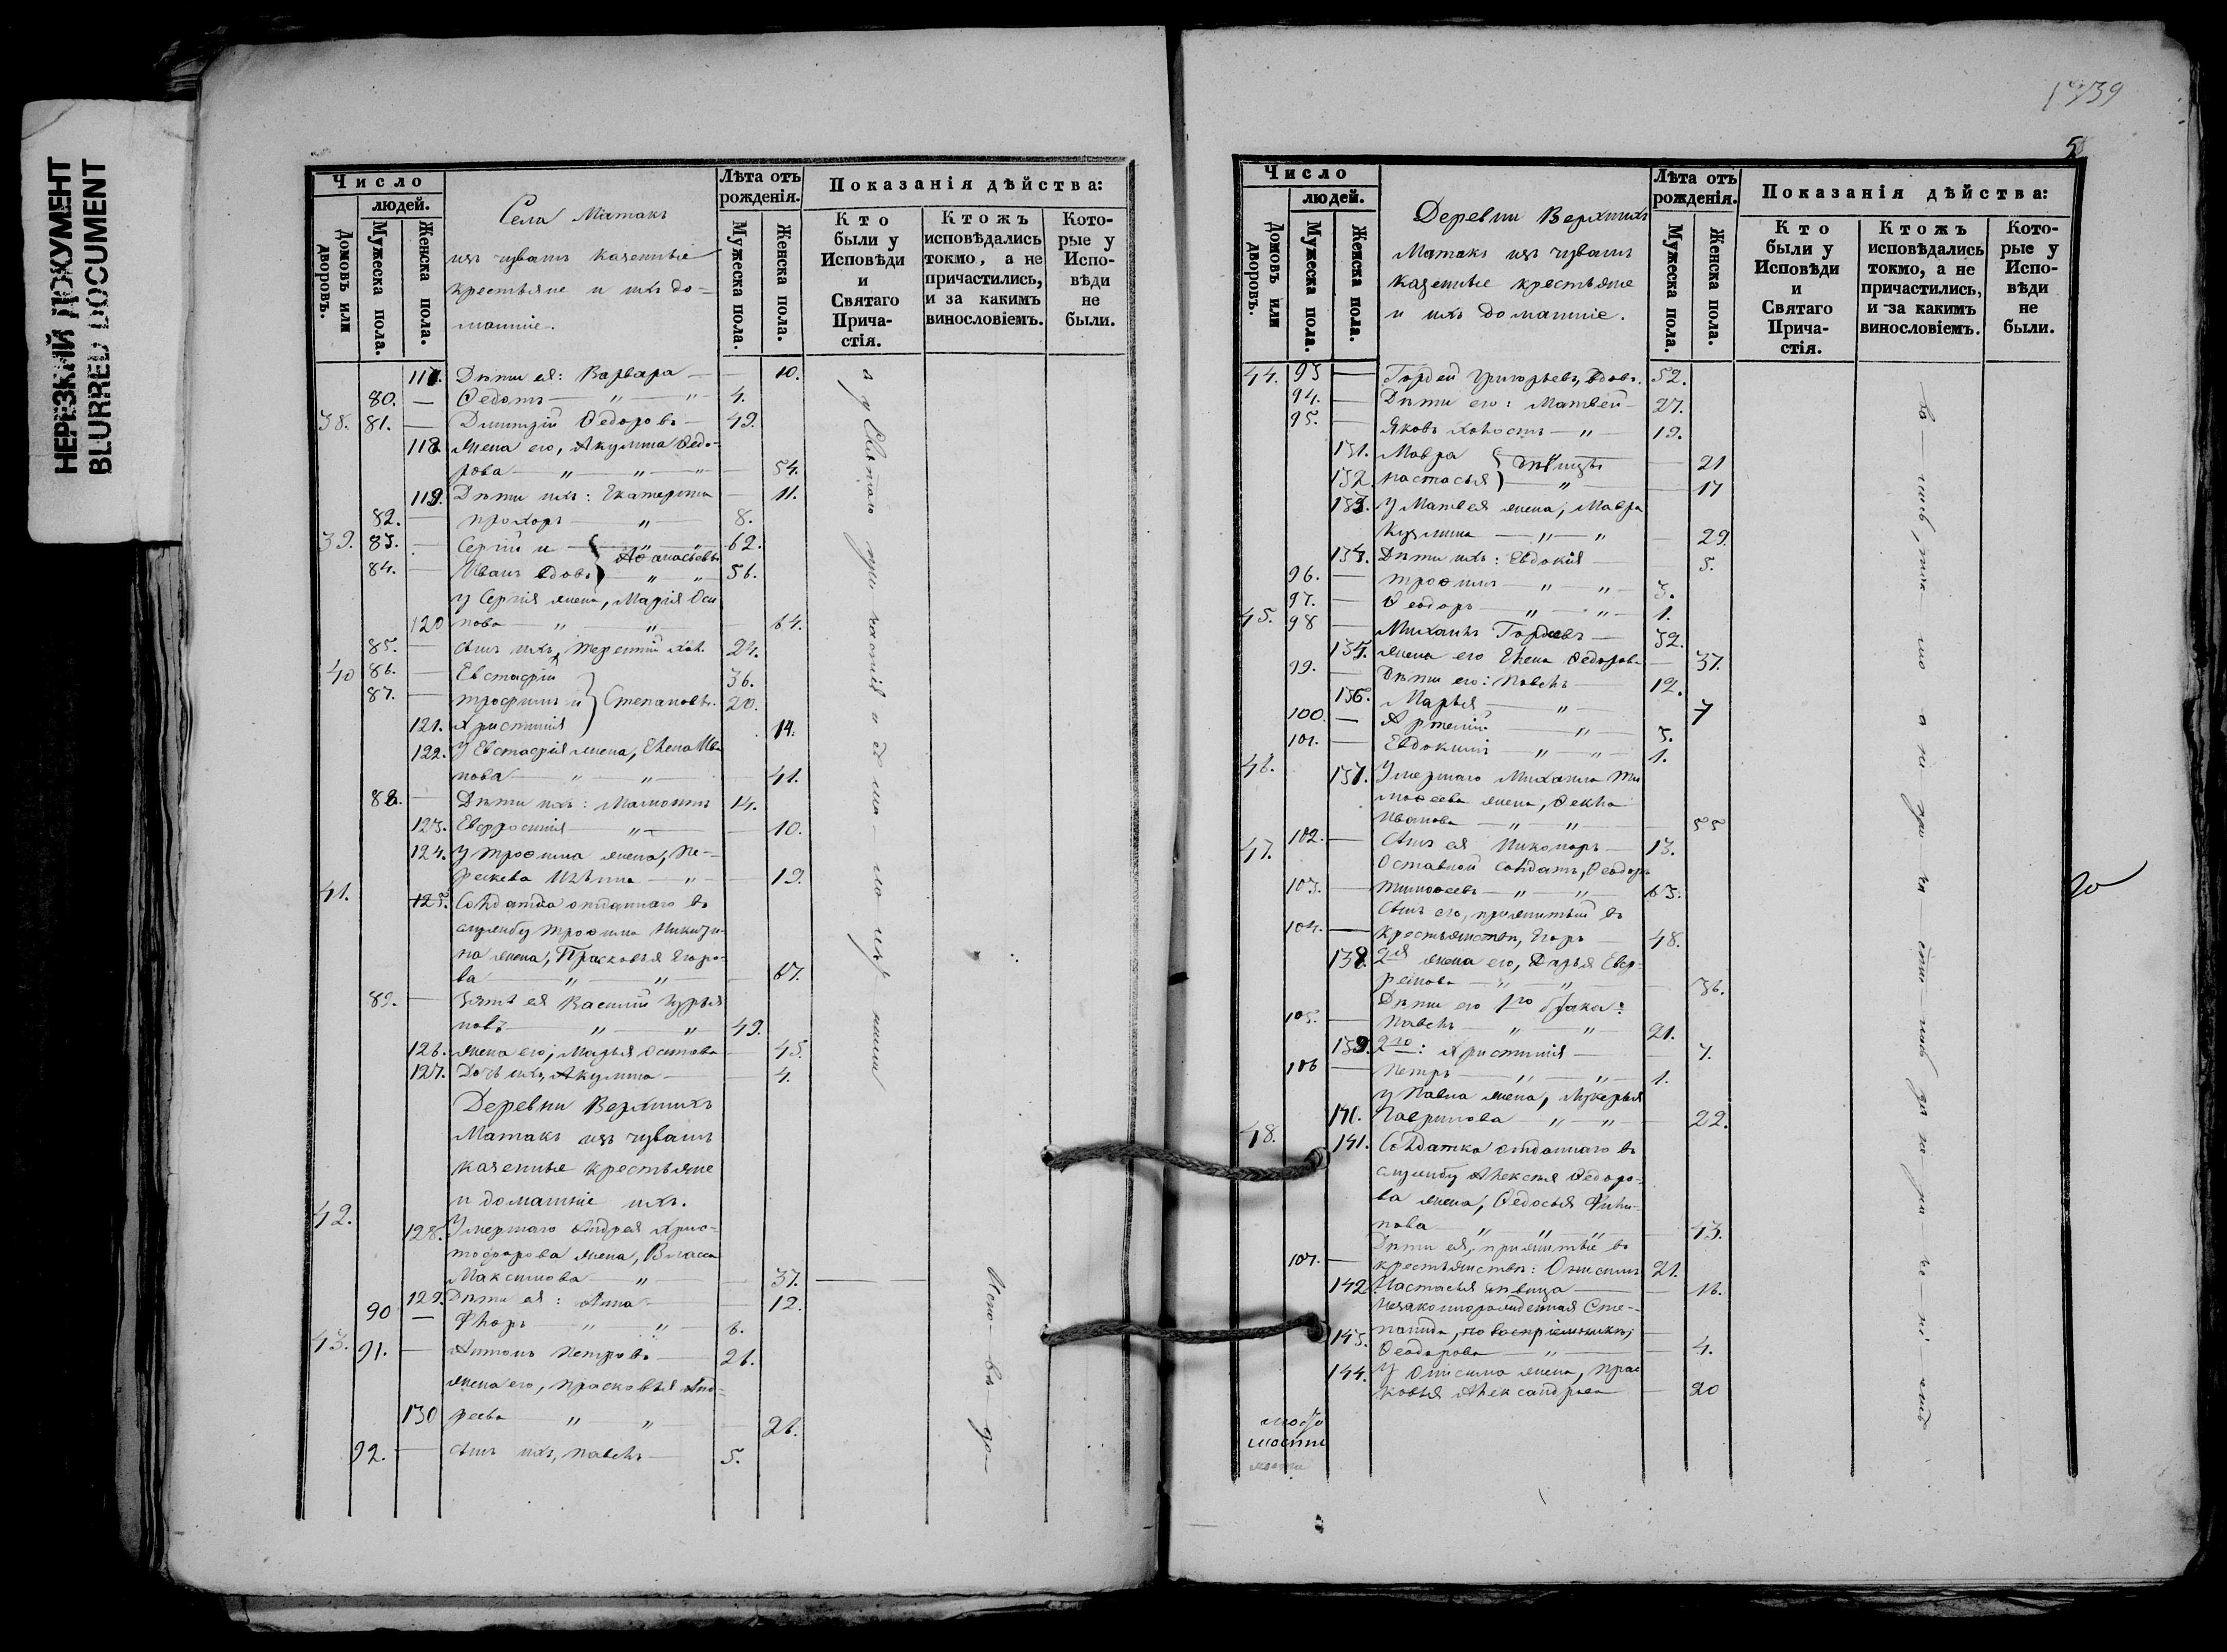 НЕРЕЗКИЙ ДОКУМЕНТ
BLURRED DOCUMENT
Число
людей.
Домовъ или дворовъ.
Мужеска пола.
Женска пола.
Села Матакъ
изъ чувашъ казенные
крестьяне и ихъ до-
машніе.
Лѣта отъ рожденія.
Мужеска пола.
Женска пола.
Показанія дѣйства:
Кто были у Исповѣди и Святаго Прича-стія.
Ктожъ исповѣдались токмо, а не причастились, и за какимъ винословіемъ.
Кото-рые у Испо-вѣди не были.
117. Дѣти ея: Варвара — 10.
80. — Ѳедотъ — " — " 4.
38. 81. — Димитрій Ѳедоровъ — 49.
118. жена его, Акулина Ѳедо-
рова — " — " — " — 54.
119. Дѣти ихъ: Екатерина — 11.
82. — Прохоръ — " — 8.
39. 83. — Сергій и — " — " 62.
Аѳанасьевы
84. — Иванъ вдовъ " " 56.
у Сергія жена, Марія Оси
120 пова — " — " — 64.
85. — сынъ ихъ, Терентій хол. 24.
40 86. — Евстафій 36.
87. — Трофимъ и Степановы. 20.
121. Христинія 14.
122. У Евстафія жена, Елена Ива
нова — " — " — 41.
88. — Дѣти ихъ: Мамонтъ 14.
123. Евфросинія — " — 10.
124. у Трофима жена, Пе-
— " — 19.
41. 125. Солдатка отданнаго въ
службу Трофима Никити-
на жена, Прасковья Егоро-
ва — " — " — 67.
89. — Зять ея Василій Гурья
новъ — " — " 49.
126. жена его, Марья Осипова — 45.
127. Дочь ихъ, Акулина — 4.
Деревни Верхнихъ
Матакъ изъ чувашъ
казенные крестьяне
и домашніе ихъ.
42.
128. Умершаго Андрея Хрис-
тофорова жена, Власса
Максимова — " — 37. —
129. Дѣти ея: Анна — 12.
90 — Флоръ — " — " — 6.
43. 91. — Антонъ Петровъ — 26.
жена его, Прасковья Анд-
130 реева — " — " — 26.
92. — сынъ ихъ, Павелъ — 5.
у Святаго при
Испо- вѣ- ди
39
58
Число
людей.
Домовъ или дворовъ.
Мужеска пола.
Женска пола.
Деревни Верхнихъ
Матакъ изъ чувашъ
казенные крестьяне
и ихъ домашніе.
Лѣта отъ рожденія.
Мужеска пола.
Женска пола.
Показанія дѣйства:
Кто были у Исповѣди и Святаго Прича-стія.
Ктожъ исповѣдались токмо, а не причастились, и за какимъ винословіемъ.
Кото-рые у Испо-вѣди не были.
44. 93 — Гордей Григорьевъ, вдовъ. 52.
94. — Дѣти его: Матвей — 27.
95. — Яковъ холостъ — " — 19.
131. Мавра дѣвицы — 21
132. Настасья — " — 17
133. У Матвея жена, Мавра
Кузмина — " — " — 29.
134. Дѣти ихъ: Евдокія — 5.
96. — Трофимъ — " — " — 3.
97. — Ѳеодоръ — " — " — 1.
45. 98 — Михаилъ Гордеевъ — 32.
135. жена его Елена Ѳедорова — 37.
99. — Дѣти его: Павелъ — 12.
136. Марья — " — 7
100. — Артемій — " — 5.
101. — Евдокимъ — " — " — 1.
46. 137. Умершаго Михаила Ти
моѳеева жена, Ѳекла
Иванова — " — " — 55
102. — сынъ ея Никоноръ — 13.
47. Оставной солдатъ, Ѳеодоръ
103. — Тимоѳеевъ — " — " — 63.
Сынъ его, прижитый въ
104. — крестьянствѣ, Егоръ — 48.
138. 2я жена его, Дарья Евф-
реімова — " — " — 36.
Дѣти его 1го брака:
105. — Павелъ — " — " 21.
139. 2го: Христинія — 7.
106 — Петръ — " — " — 1.
у Павла жена, Лукерья
140. Гаврилова " — " — 22.
48. 141. Солдатка отданнаго въ
службу Алексѣя Ѳедоро-
ва жена, Ѳедосья Фили-
пова — " — " — " — 43.
Дѣти ея, прижитые въ
107. — крестьянствѣ: Онисимъ 21.
142 Настасья дѣвица — 16.
Незаконнорожденная Сте-
панида, по воспріемникѣ,
143. Ѳеодорова — " — 4.
144. У Онисима жена, Прас
ковья Александрова — 20